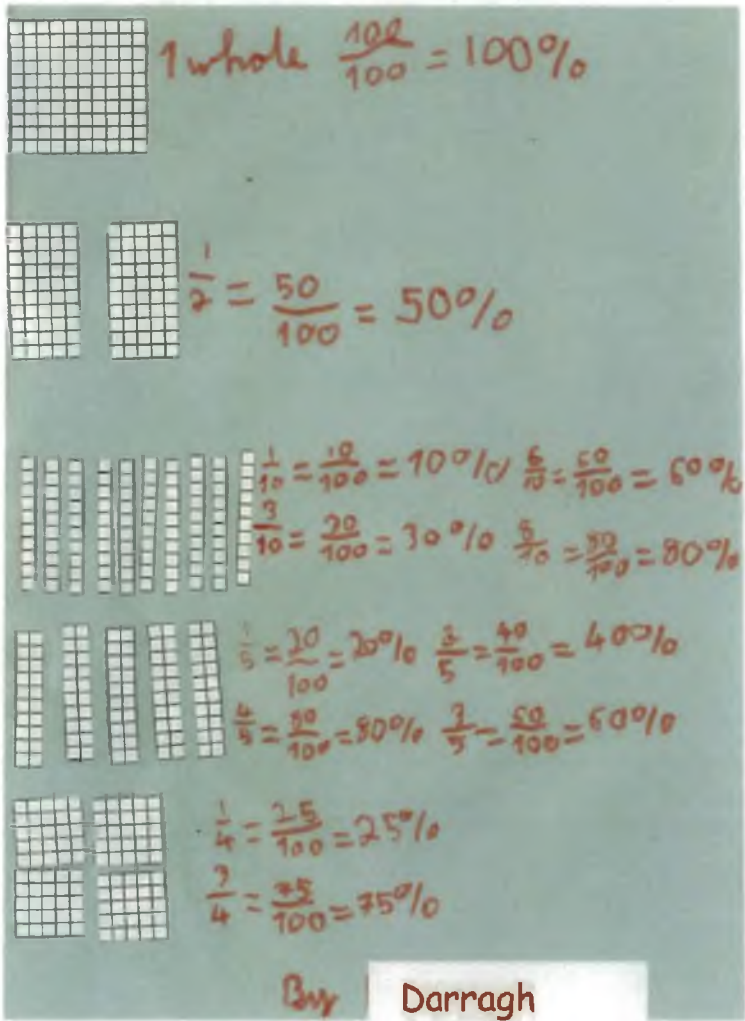 1 whole 100/100 = 100%
1/2 = 50/100 = 50%
1/10 = 10/100 = 10% 6/10 = 60/100 = 60%
3/10 = 30/100 = 30% 8/10 = 80/100 = 80%
1/5 = 20/100 = 20% 2/5 = 40/100 = 40%
4/5 = 80/100 = 80% 3/5 = 60/100 = 60%
1/4 = 25/100 = 25%
3/4 = 75/100 = 75%
By Darragh